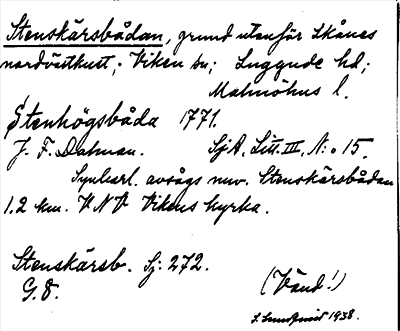 Stenskärsbådan, grund utanför Skånes
nordvästkust; Viken sn; Luggude hd;
Malmöhus l.
Stenhögsbåda 1771.
J. F. Dalman. SjA, Litt. III, N:o 15.
Synbarl. avsågs nuv. Stenskärsbådan
1.2 km. VNV Vikens kyrka.
Stenskärsb. Sj: 272.
G.8.
(Vänd!)
1938.